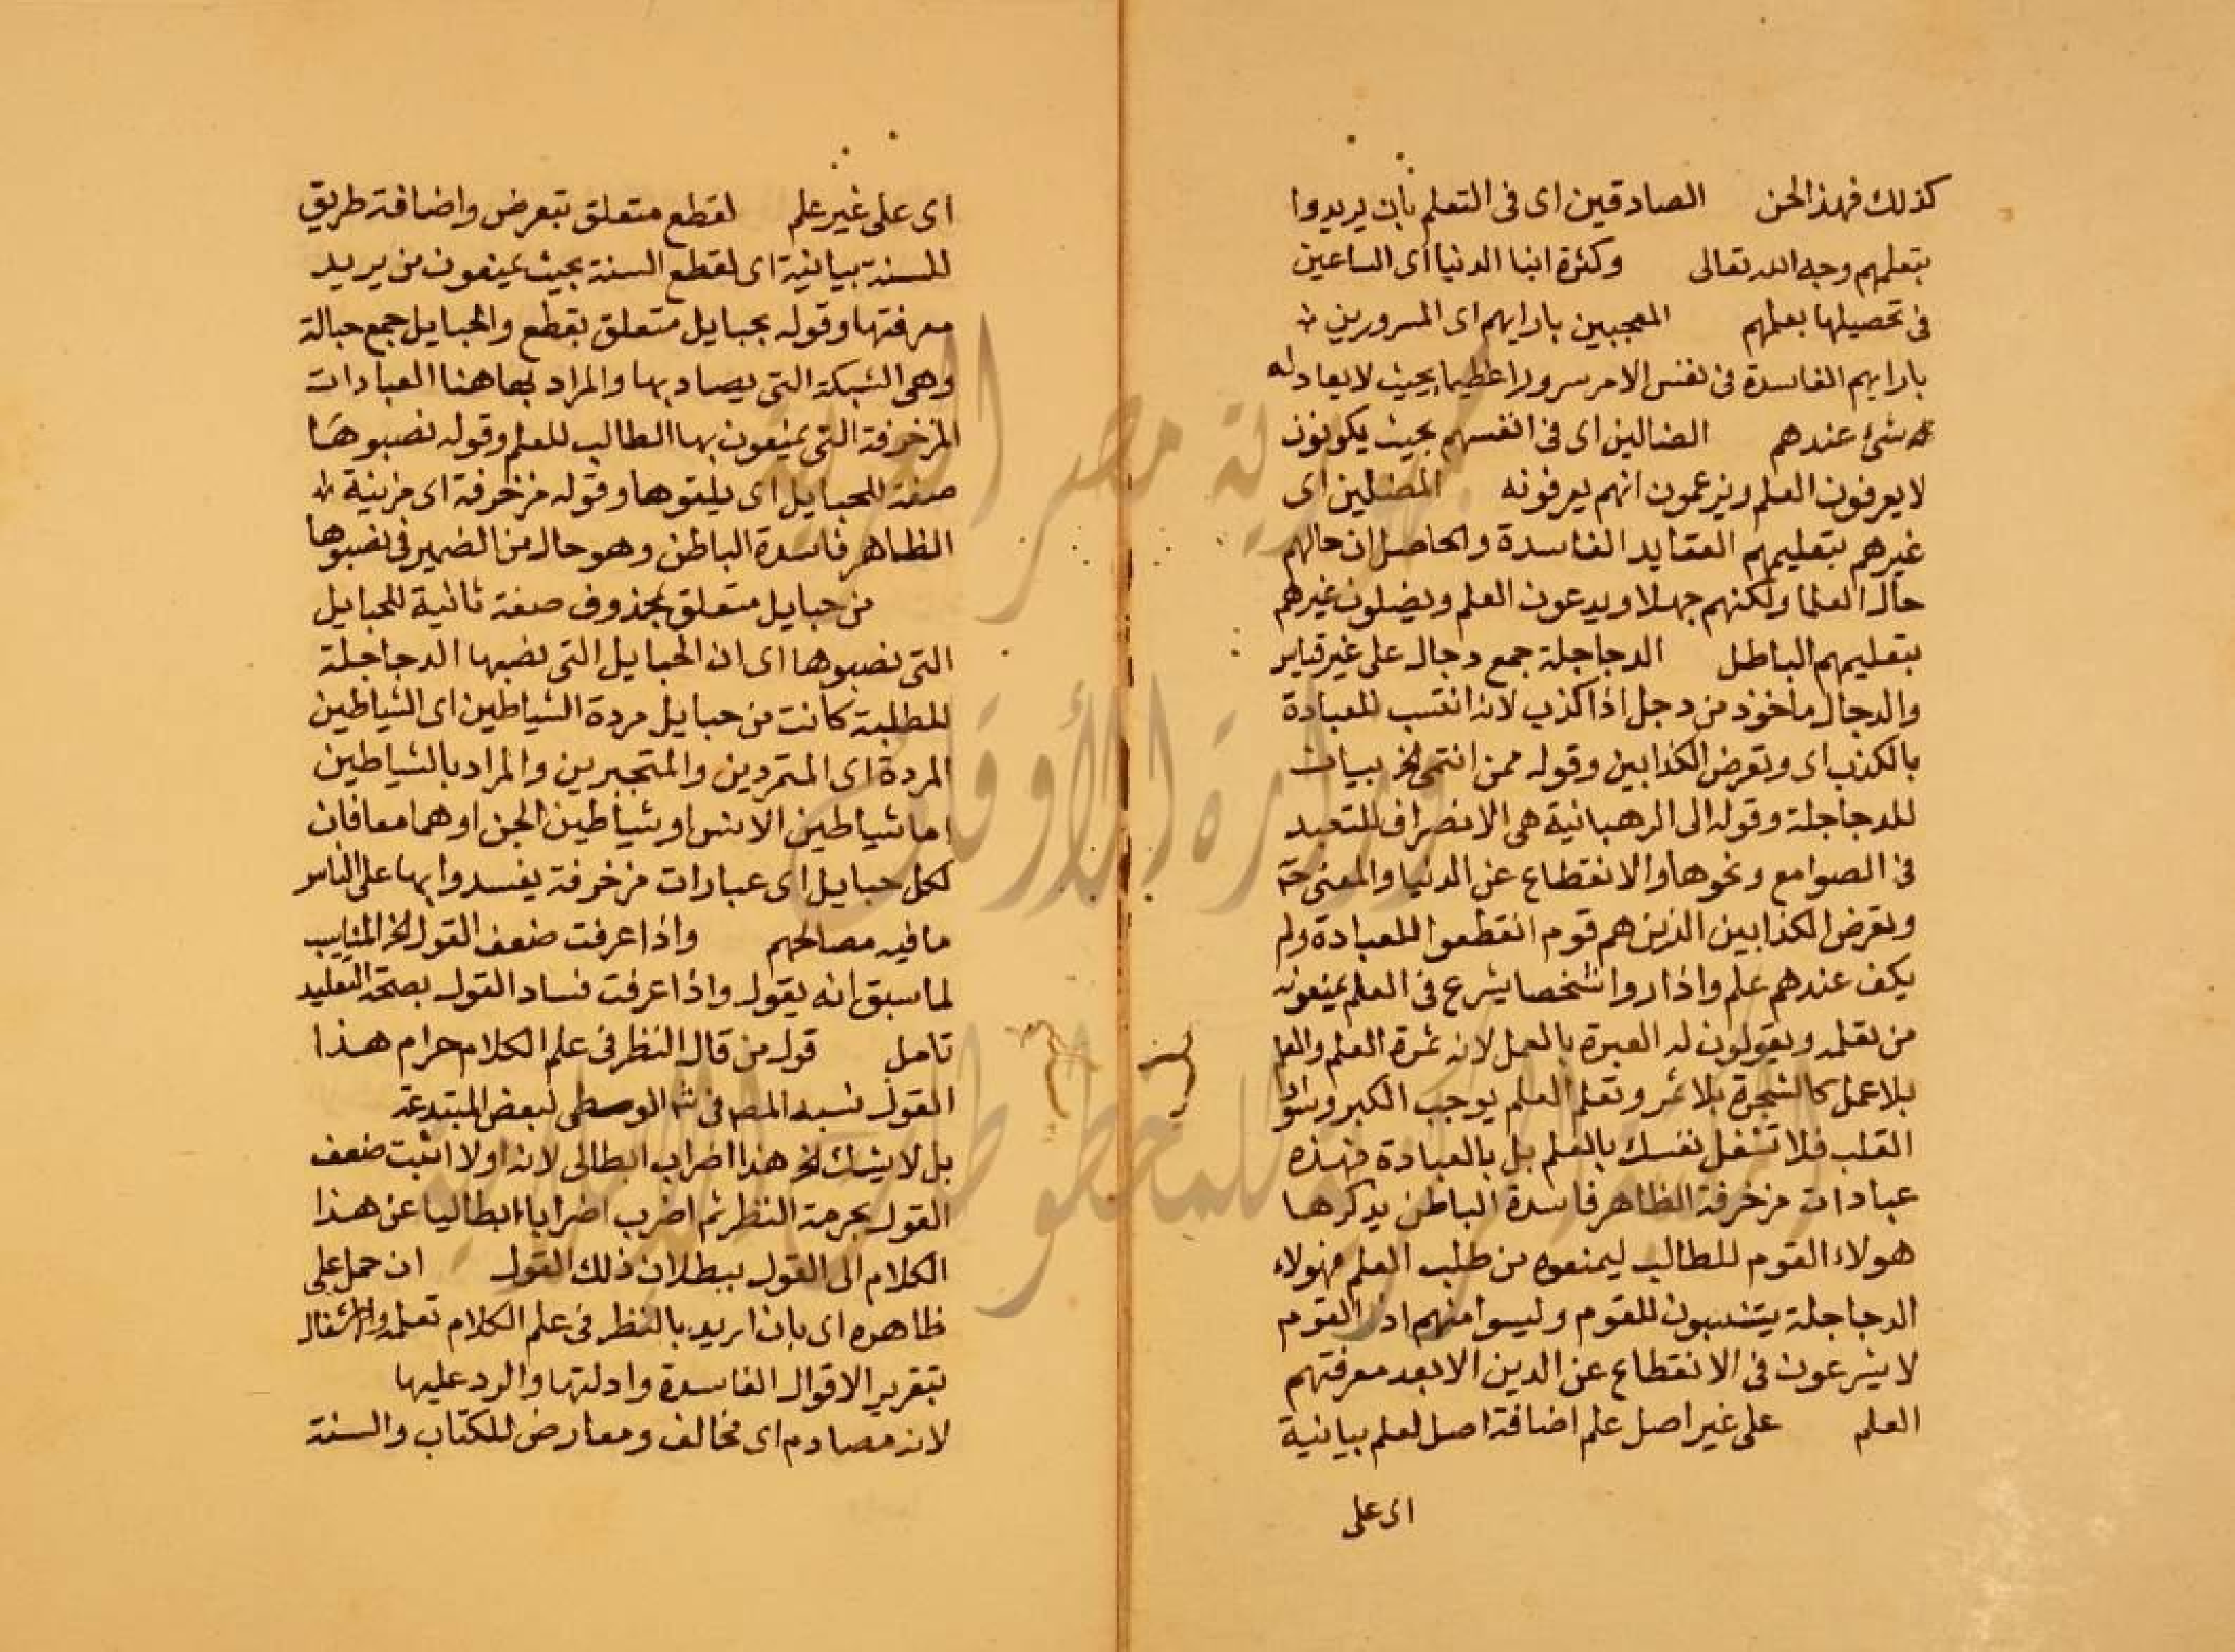 كذلك فهذا الحن الصادقين اى فى التعلم بأن يريدوا
بتعلمهم وجه الله تعالى وكثرة ابنا الدنيا اى الساعين
فى تحصيلها بعلمهم المعجبين بارايهم اى المسرورين
بارايهم الفاسدة فى نفس الامر سرورا عظيما بحيث لا يعادله
شئ عندهم الضالين اى فى انفسهم بحيث يكونون
لا يعرفون العلم ويزعمون انهم يعرفونه المضلين اى
غيرهم بتعليمهم العقايد الفاسدة والحاصل ان حالهم
حال العلما ولكنهم جهلا ويدعون العلم ويضلون غيرهم
بتعليمهم الباطل الدجاجلة جمع دجال على غير قياس
والدجال ماخوذ من دجل اذا كذب لانه انتسب للعبادة
بالكذب اى وتعرض الكذابين وقوله ممن انتمى الخ بيان
للدجاجلة وقوله الى الرهبانية هى الانصراف للتعبد
فى الصوامع ونحوها والانقطاع عن الدنيا والمعنى ح
وتعرض الكذابين الذين هم قوم انقطعوا للعبادة ولم
يكف عندهم علم واذا راوا شخصا يشرع فى العلم يمنعونه
من تعلمه ويقولون له العبرة بالعمل لانه ثمرة العلم والعلم
بلا عمل كالشجرة بلا ثمر وتعلم العلم يوجب الكبر
القلب فلا تشغل نفسك بالعلم بل بالعبادة فهذه
عبادات مزخرفة الظاهر فاسدة الباطن يذكرها
هولاء القوم للطالب ليمنعوه من طلب العلم فهولاء
الدجاجلة ينتسبون للقوم وليسوا منهم اذ القوم
لا يشرعون فى الانقطاع عن الدين الا بعد معرفتهم
العلم على غير اصل علم اضافة اصل لعلم بيانية
اى على
اى على غير علم لقطع متعلق بتعرض واضافة طريق
للسنة بيانية اى لقطع السنة بحيث يمنعون من يريد
معرفتها وقوله بحبايل متعلق بقطع والحبايل جمع حبالة
وهى الشبكة التى يصاد بها والمراد بها هنا العبادات
المزخرفة التى يمنعون بها الطالب للعلم وقوله نصبوها
صفة للحبايل اى يلقوها وقوله مزخرفة اى مزينة
الظاهر فاسدة الباطن وهو حال من الضمير فى نصبوها
من حبايل متعلق بمحذوف صفة ثانية للحبايل
التى نصبوها اى ان الحبايل التى نصبها الدجاجلة
للطلبة كانت من حبايل مردة الشياطين اى الشياطين
المردة اى المتمردين والمتجبرين والمراد بالشياطين
اما شياطين الانس او شياطين الجن او هما معا فان
لكل حبايل اى عبارات مزخرفة يفسدوا بها على الناس
ما فيه مصالحهم واذا عرفت ضعف القول الخ المناسب
لما سبق انه يقول واذا عرفت فساد القول بصحة التقليد
تامل قوله من قال النظر فى علم الكلام حرام هذا
القول نسبه المص فى شرح الوسطى لبعض المبتدعة
بل لا يشك الخ هذا اضراب ابطالى لانه اولا اثبت ضعف
القول بحرمة النظر ثم اضرب اضرابا ابطاليا عن هذا
الكلام الى القول ببطلان ذلك القول ان حمل على
ظاهره اى بان اريد بالنظر فى علم الكلام تعلمه والاشتغال
بتقرير الاقوال الفاسدة وادلتها والرد عليها
لانه مصادم اى مخالف ومعارض للكتاب والسنة